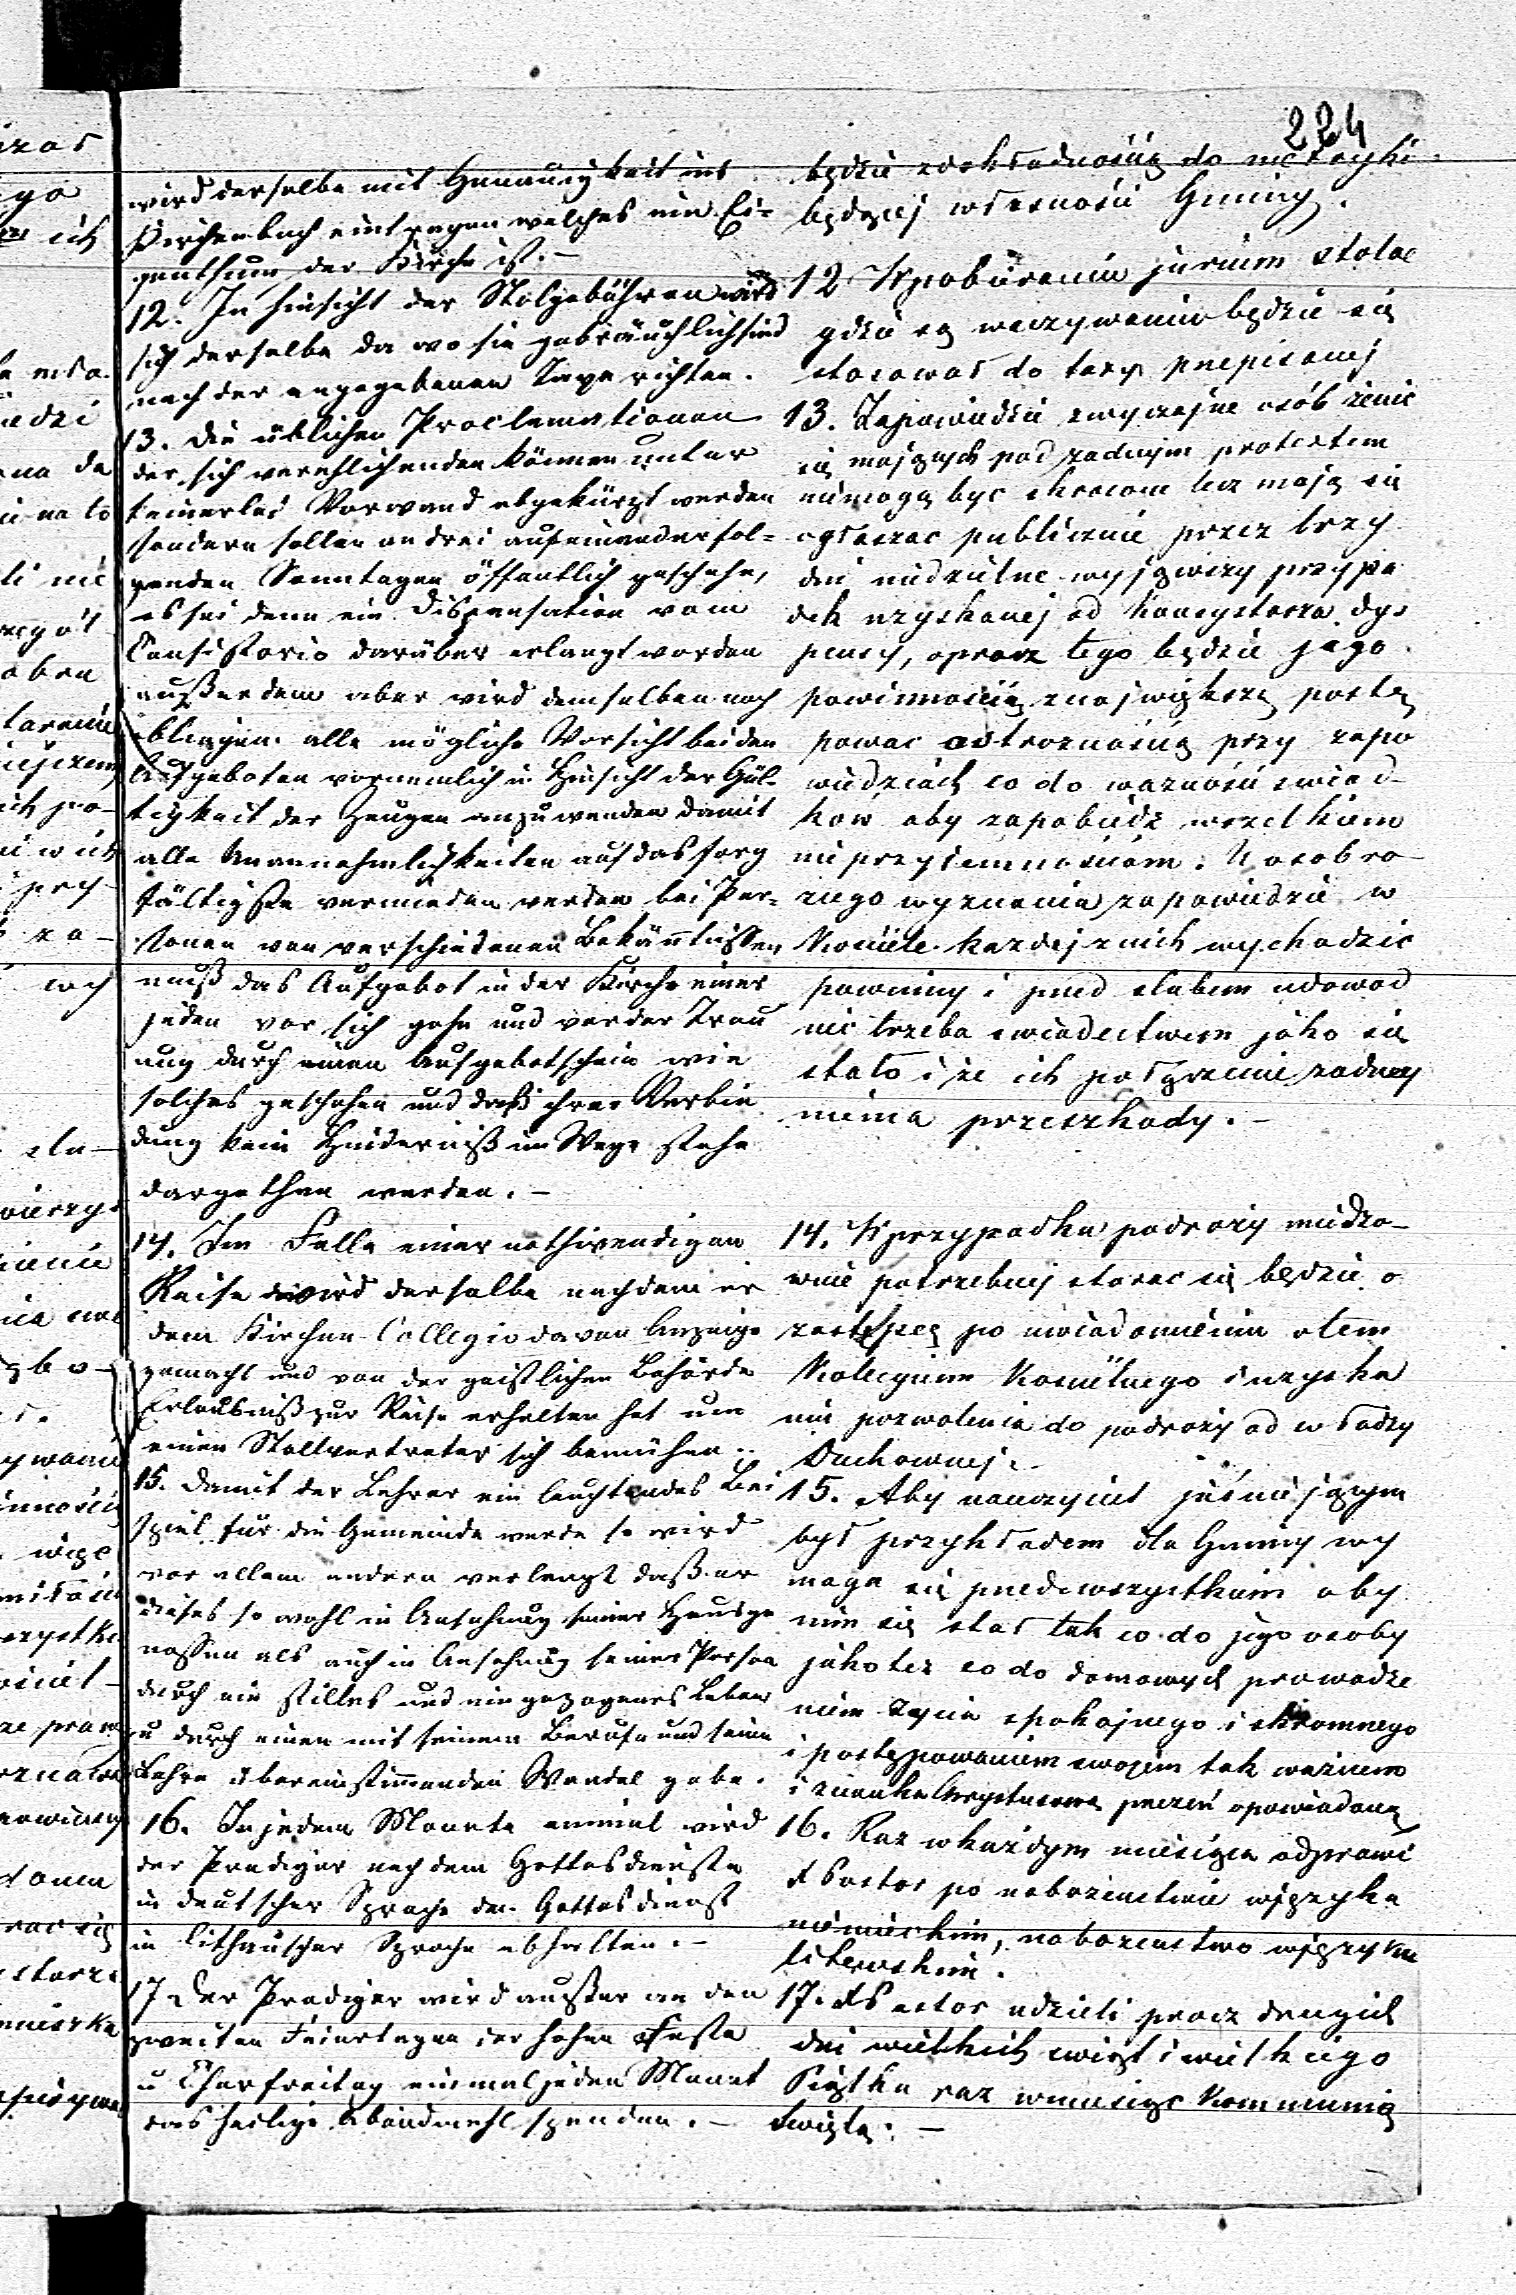 224
wird derselbe mit Genauigkeit ins
Kirchenbuch eintragen welches ein Ei=
genthum der Kirche ist. –
12. In hinsicht der Stolgebühren wird
sich derselbe da wo sie gebräuchlich sind
nach der angegebenen Taxe richten.
13. die üblichen Proclamationen
der sich verehlichenden können unter
keinerlei Vorwand abgekürzt werden
sondern sollen an drei aufeinanderfol=
genden Sonntagen öffentlich geschehe,
es sei denn ein Dispensation vom
Consistorio darüber erlangt worden
außerdem aber wird demselben noch
obliegen alle mögliche Vorsicht bei den
Aufgeboten vornemlich in Hinsicht der Gül-
tigkeit der Zeugen anzuwenden damit
alle Unannehmlichkeiten auf das sorg
fältigste vermieden werden bei Per=
sonen von verschiedenen Bekänntnissen
muß das Aufgebot in der Kirche einer
jeden vor sich gehe und vor der Trau
ung durch einen Aufgebotschein wie
solches geschehen und daß ihrer Verbin
dung kein Hinderniß im Wege stehe
dargethan werden. –
14. Im Falle einer nothwendigen
Reise wird derselbe nachdem er
dem Kirchen-Collegio davon Anzeige
gemacht und von der geistlichen Behörde
Erlaubniß zur Reise erhalten hat um
einen Stellvertreter sich bemühen.
15. Damit der Lehrer ein leuchtendes Bei
spiel für die Gemeinde werde so wird
vor allem andern verlangt daß er
dieses so wohl in Ansehung seiner Hausge
nossen als auch in Ansehung seiner Person
durch ein stilles und eingezogenes Leben
u durch einen mit seinem Berufe und seine
Lehre übereinstimmenden Wandel gebe.
16. In jedem Monate einmal wird
der Prediger nach dem Gottesdienste
in deutscher Sprache den Gottesdienst
in lithauscher Sprache abhalten. –
17 Der Prediger wird außer an den
zweiten Feiertagen der hohen Feste
u Charfreitag einmal jeden Monat
das heilige Abendmehl spenden. –
będzie zdokładnością do metryki
będącej własnością Gminy.
12 Wpobieraniu jurium stolae
gdzie są wuzywaniu będzie się
stosował do taxy przepisanej
13. Zapowiedzie zwyczajne osób zenic
się mających pod zadnym protextem
niemogą byc skracane lecz mają się
ogłaszac publicznie przez trzy
dni niedzielne wyjąwszy przypa
dek uzyskanej od konsystorza dys
pensy, oprocz tego będzie jego
powinnością znajwiększą postę
powac ostroznością przy zapo
wiedziach co do waznosci swiad
kow aby zapobiedz wszelkiem
nieprzyiemnosciom. U osob ro
znego wyznania zapowiedzie w
Kosciele kazdej znich wychodzic
powinny i przed slubem udowod
nic trzeba swiadectwem jako się
stało i ze ich połączenie zadney
niema przeszkody. –
14. Wprzypadku podrozy niedzo-
wnie potrzebnej starac się będzie o
zastępcę po uwiadomieniu otem
Kolegium Koscielnego i uzyska
niu pozwolenia do podrozy od władzy
Duchownej.
15. Aby nauczyciel jasniejącym
był przykładem dla Gminy wy
maga się przedewszystkiem aby
nim się stał tak co do jego osoby
jakotez co do domowych prowadze
niem zycia spokojnego i skromnego
i postępowaniem swojem tak
i znauka Chrystusowa przezeń opowiadaną
16. Raz wkażdym miesiącu odprawi
Pastor po nabozenstwie wjęzyku
niemieckim, nabozenstwo wjęzyku
litewskim.
17. Pastor udzieli procz drugich
dni wielkich swiąt i wielkiego
Piątku raz wmiesiąc Kommunią
Swiętą. –